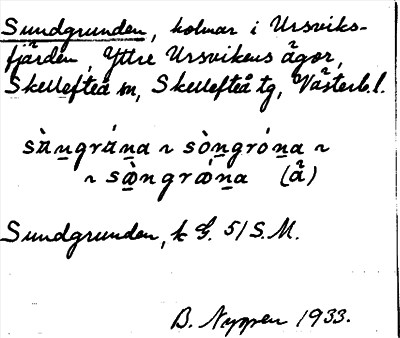 Sundgrunden, holmar i Ursviks-
fjärden, Yttre Ursvikens ägor,
Skellefteå sn, Skellefteå tg, Västerb. l.
sàngrána ~ sòngróna ~
~ sœ̀ngrœ́na (å)
Sundgrunden, k G. 51 S.M.
B. Nyppen 1933.